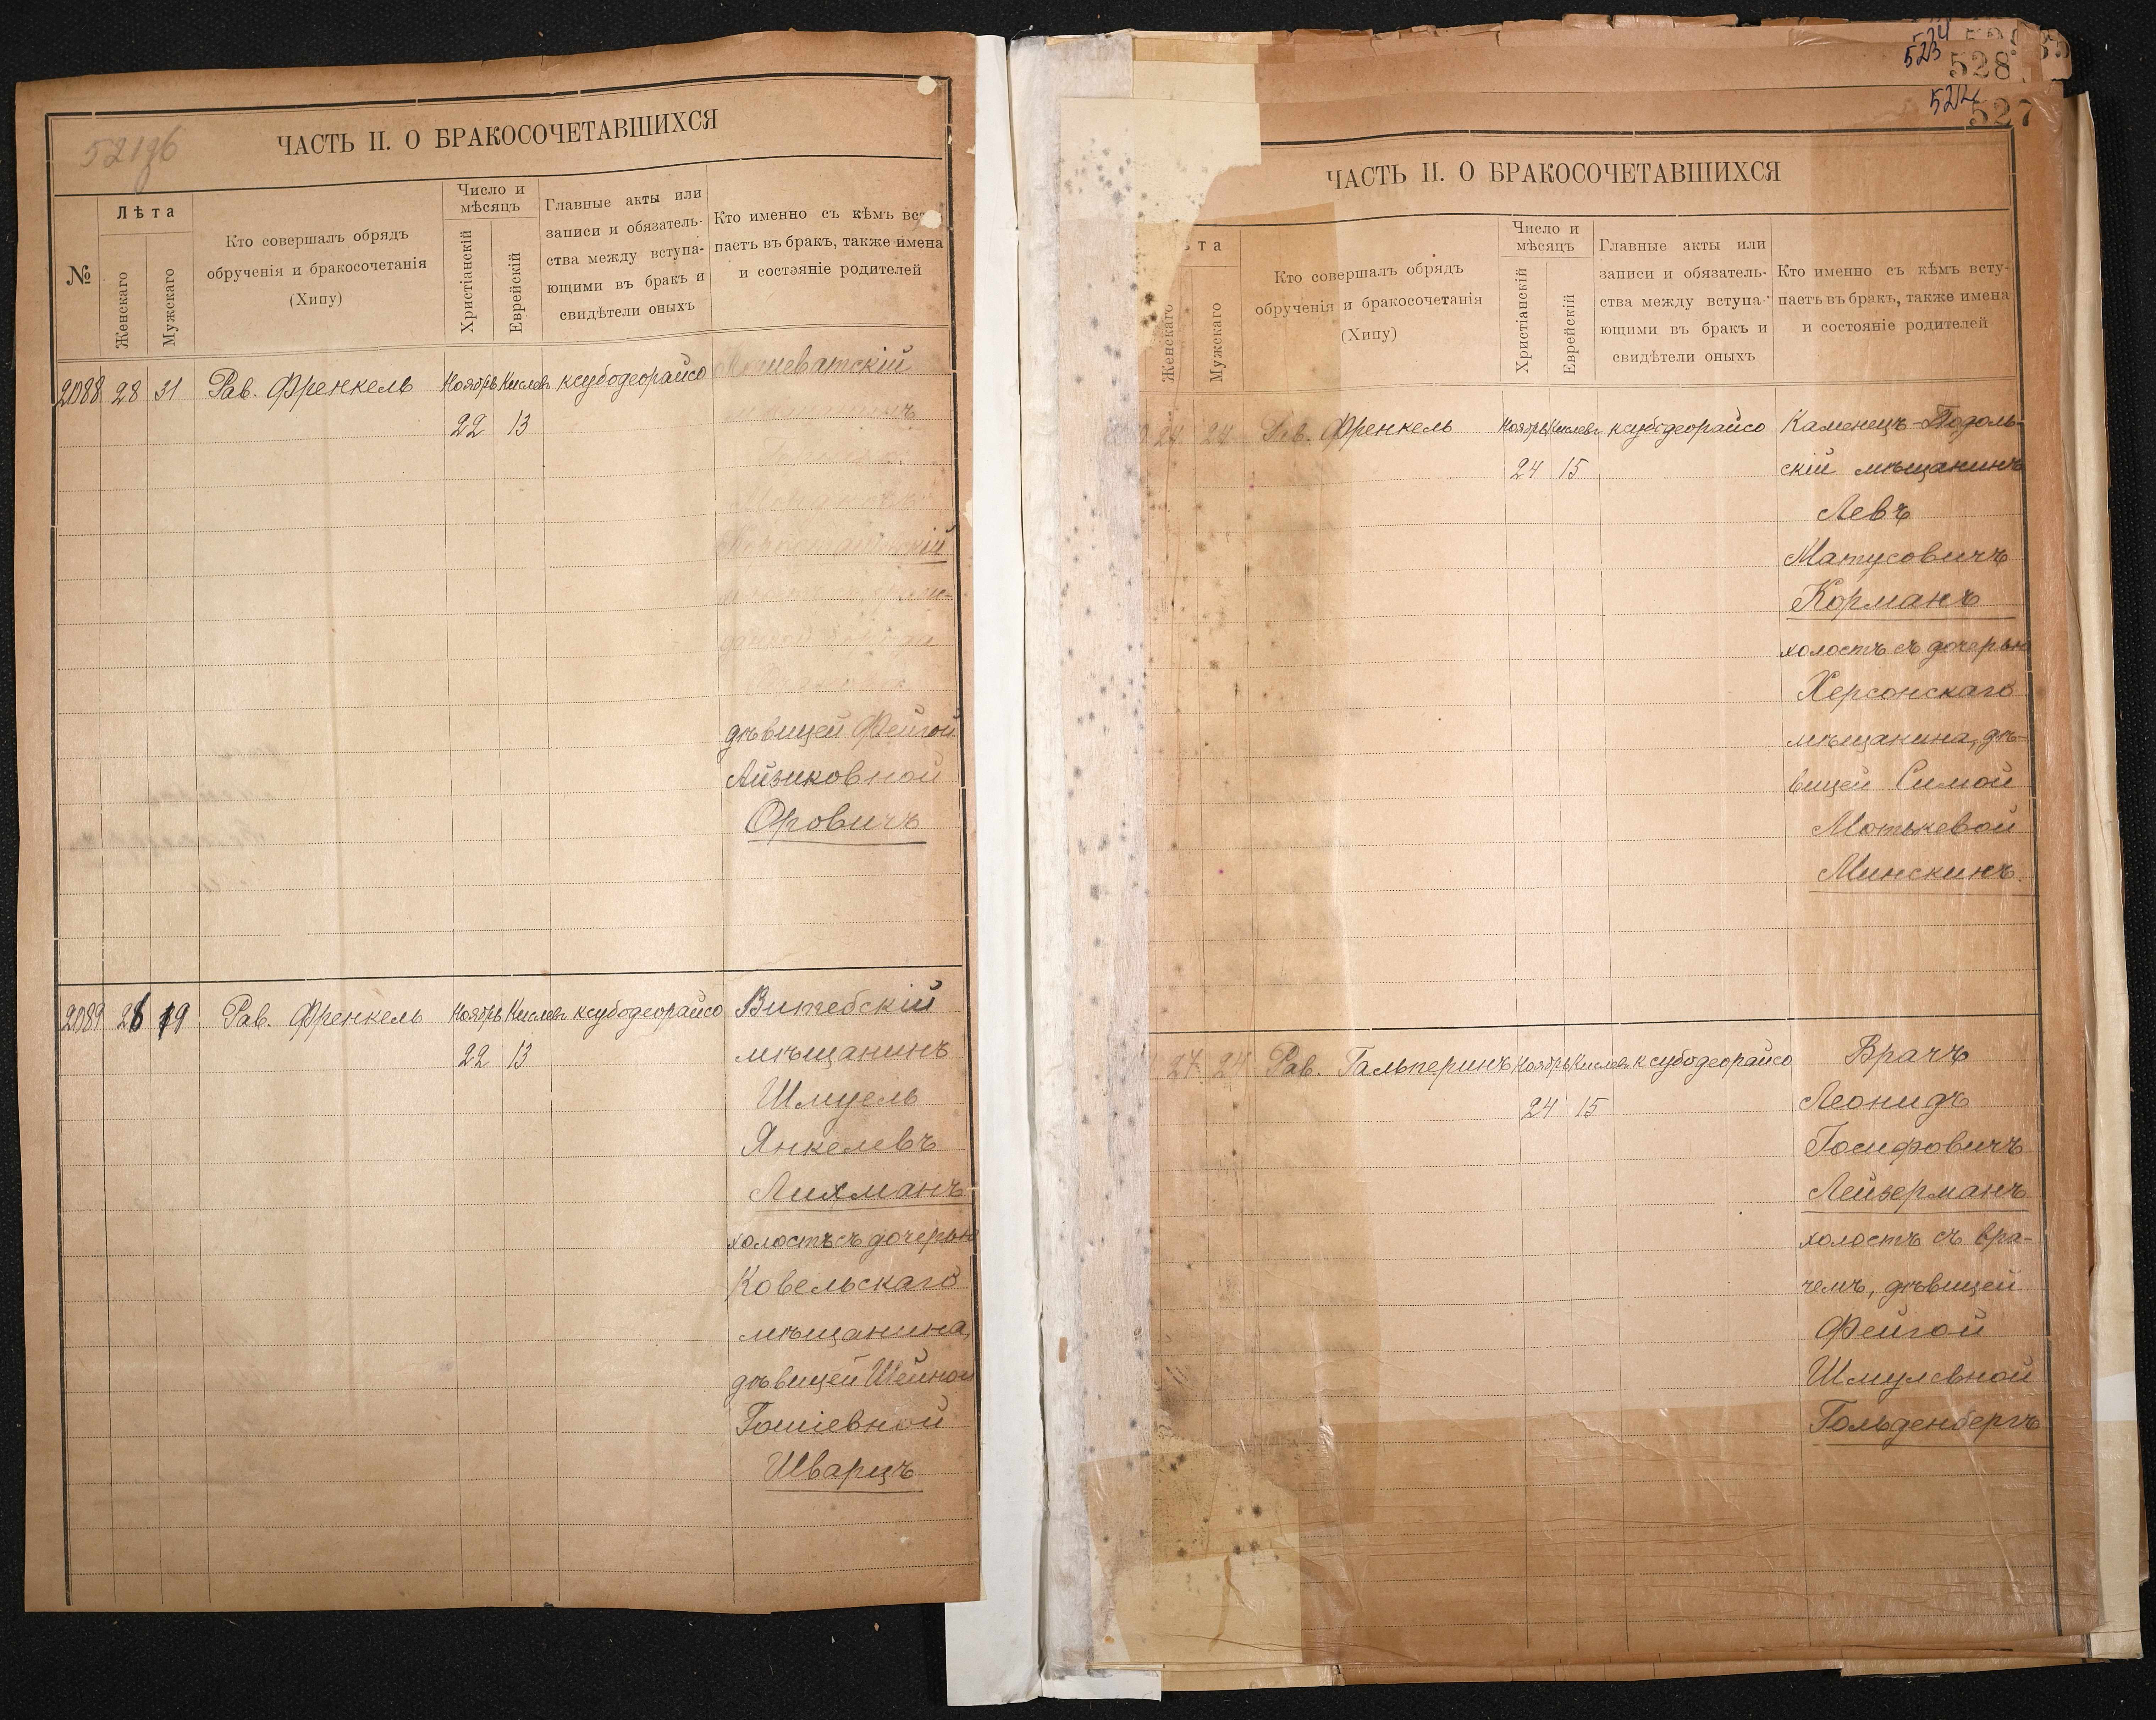 ЧАСТЬ II. О БРАКОСОЧЕТАВШИХСЯ
№
Лѣта
Женскаго
Мужскаго
Кто совершалъ обрядъ
обрученія и бракосочетанія
(Хипу)
Число и
мѣсяцъ
Христіанскій
Еврейскій
Главные акты или
записи и обязатель-
ства между вступа-
ющими въ бракъ и
свидѣтели оныхъ
Кто именно съ кѣмъ вст
паетъ въ бракъ, также имена
и состояніе родителей
2088 28 31 Рав. Френкель Ноябрь Кислев ксубодеорайсо
22 13
дѣвицей Фейгой
Айзиковной
Оровичъ
2089 Рав. Френкель Ноябрь Кислев ксубодеорайсо Витебскій
22 13 мѣщанинъ
Шмуель
Янкелевъ
Лихманъ
холостъ съ дочерью
Ковельскаго
мѣщанина,
дѣвицей Шейной
Гошіевной
Шварцъ
528
527
ЧАСТЬ II. О БРАКОСОЧЕТАВШИХСЯ
та
Женскаго
Мужскаго
Кто совершалъ обрядъ
обрученія и бракосочетанія
(Хипу)
Число и
мѣсяцъ
Христіанскій
Еврейскій
Главные акты или
записи и обязатель-
ства между вступа-
ющими въ бракъ и
свидѣтели оныхъ
Кто именно съ кѣмъ всту-
паетъ въ бракъ, также имена
и состояніе родителей
24 24 Рав. Френкель Ноябрь Кислев ксубодеорайсо Каменецъ-Подоль-
24 15 скій мѣщанинъ
Левъ
Матусовичъ
Корманъ
холостъ съ дочерью
Херсонскаго
мѣщанина, дѣ-
вицей Симой
Мотькевой
Минскинъ.
27 24 Рав. Гальперинъ Ноябрь Кислев ксубодеорайсо Врачъ
24 15 Леонидъ
Іосифовичъ
Лейзерманъ
холостъ съ вра-
чемъ, дѣвицей
Фейгой
Шмулевной
Гольденбергъ